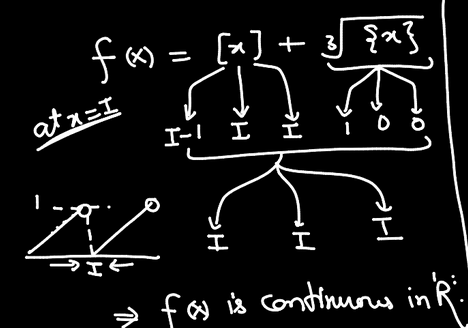 f(x) = [x] + ∛{x}
at x = I
I-1 I I 1 0 0
I I I
1
I
⇒ f(x) is continuous in 'R'.